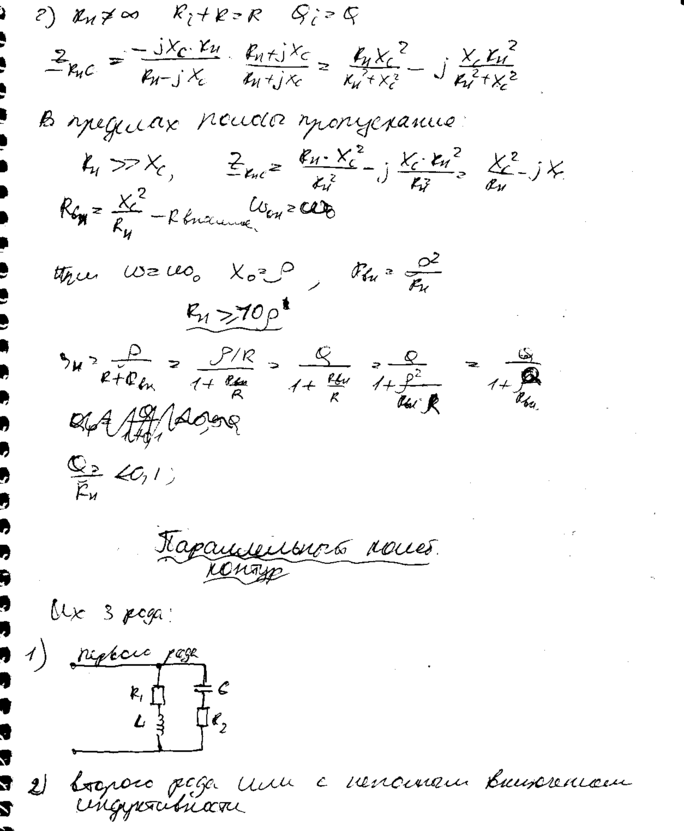 2) Rн ≠ ∞ Ri + R = R Qi = Q
Z RнC = -jXc·Rн / Rн - jXc · Rн + jXc / Rн + jXc = RнXc² / Rн² + Xc² - j XcRн² / Rн² + Xc²
В пределах полосы пропускание:
Rн >> Xc, Z RнC = Rн·Xc² / Rн² - j Xc·Rн² / Rн² = Xc² / Rн - jXc
Rвн = Xc² / Rн - R
При ω = ω₀ X₀ = ρ, Rвн = ρ² / Rн
Rн ≥ 10ρ
= ρ / R + Rвн = ρ/R / 1 + Rвн / R = Q / 1 + Rвн / R = Q / 1 + ρ² =
< 0,1;
Параллельный колеб.
контур
Их 3 рода:
1) первого рода
R₁ C
L R₂
2) второго рода или с неполным включением
индуктивности